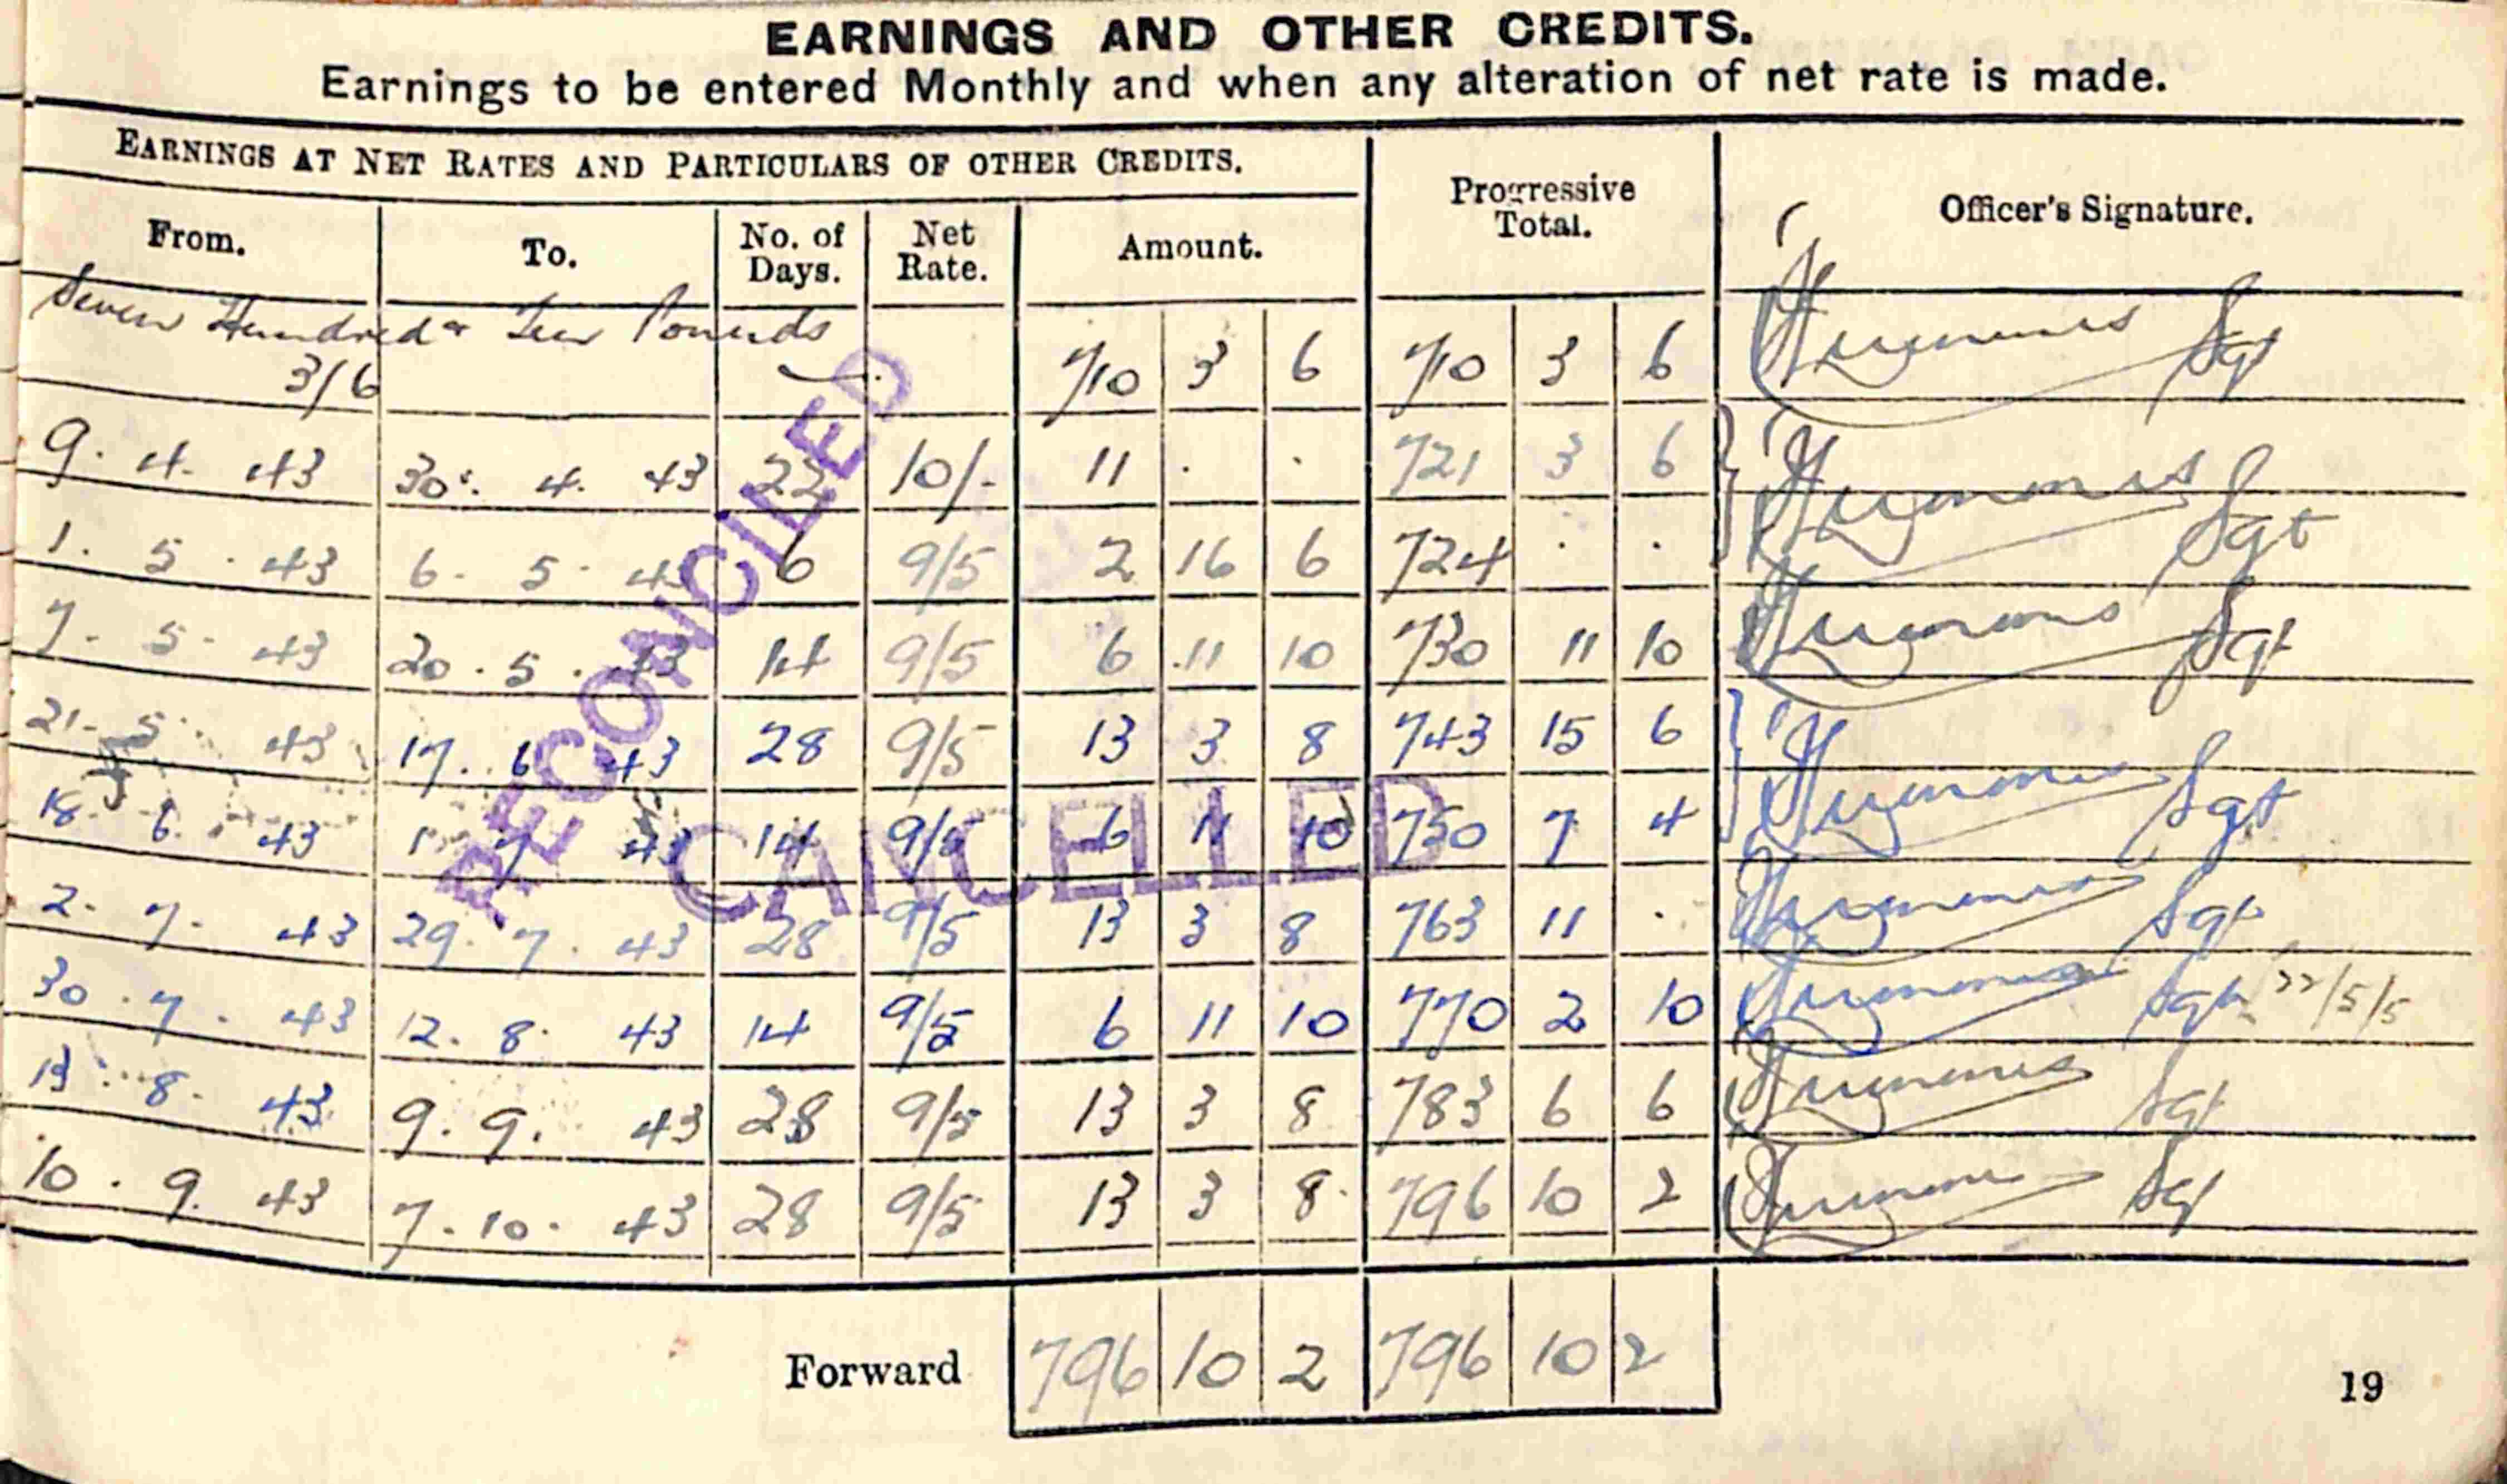 EARNINGS AND OTHER CREDITS.
Earnings to be entered Monthly and when any alteration of net rate is made.
EARNINGS AT NET RATES AND PARTICULARS OF OTHER CREDITS.
Progressive Total.
Officer's Signature.
From. To. No. of Days. Net Rate. Amount.
Seven Hundred & Ten Pounds
3/6 710 3 6 710 3 6 Sgt
9. 4. 43 30. 4. 43 22 10/- 11 . . 721 3 6
1. 5. 43 6. 5. 43 6 9/5 2 16 6 724 . . Sgt
7. 5. 43 20. 5. 43 14 9/5 6 11 10 730 11 10 Sgt
21. 5. 43 17. 6. 43 28 9/5 13 3 8 743 15 6
18. 6. 43 1. 7. 43 14 9/5 6 11 10 750 7 4 Sgt
2. 7. 43 29. 7. 43 28 9/5 13 3 8 763 11 . Sgt
30. 7. 43 12. 8. 43 14 9/5 6 11 10 770 2 10 Sgt 22/5/5
13. 8. 43 9. 9. 43 28 9/5 13 3 8 783 6 6 Sgt
10. 9. 43 7. 10. 43 28 9/5 13 3 8 796 10 2 Sgt
RECONCILED
CANCELLED
Forward 796 10 2 796 10 2
19